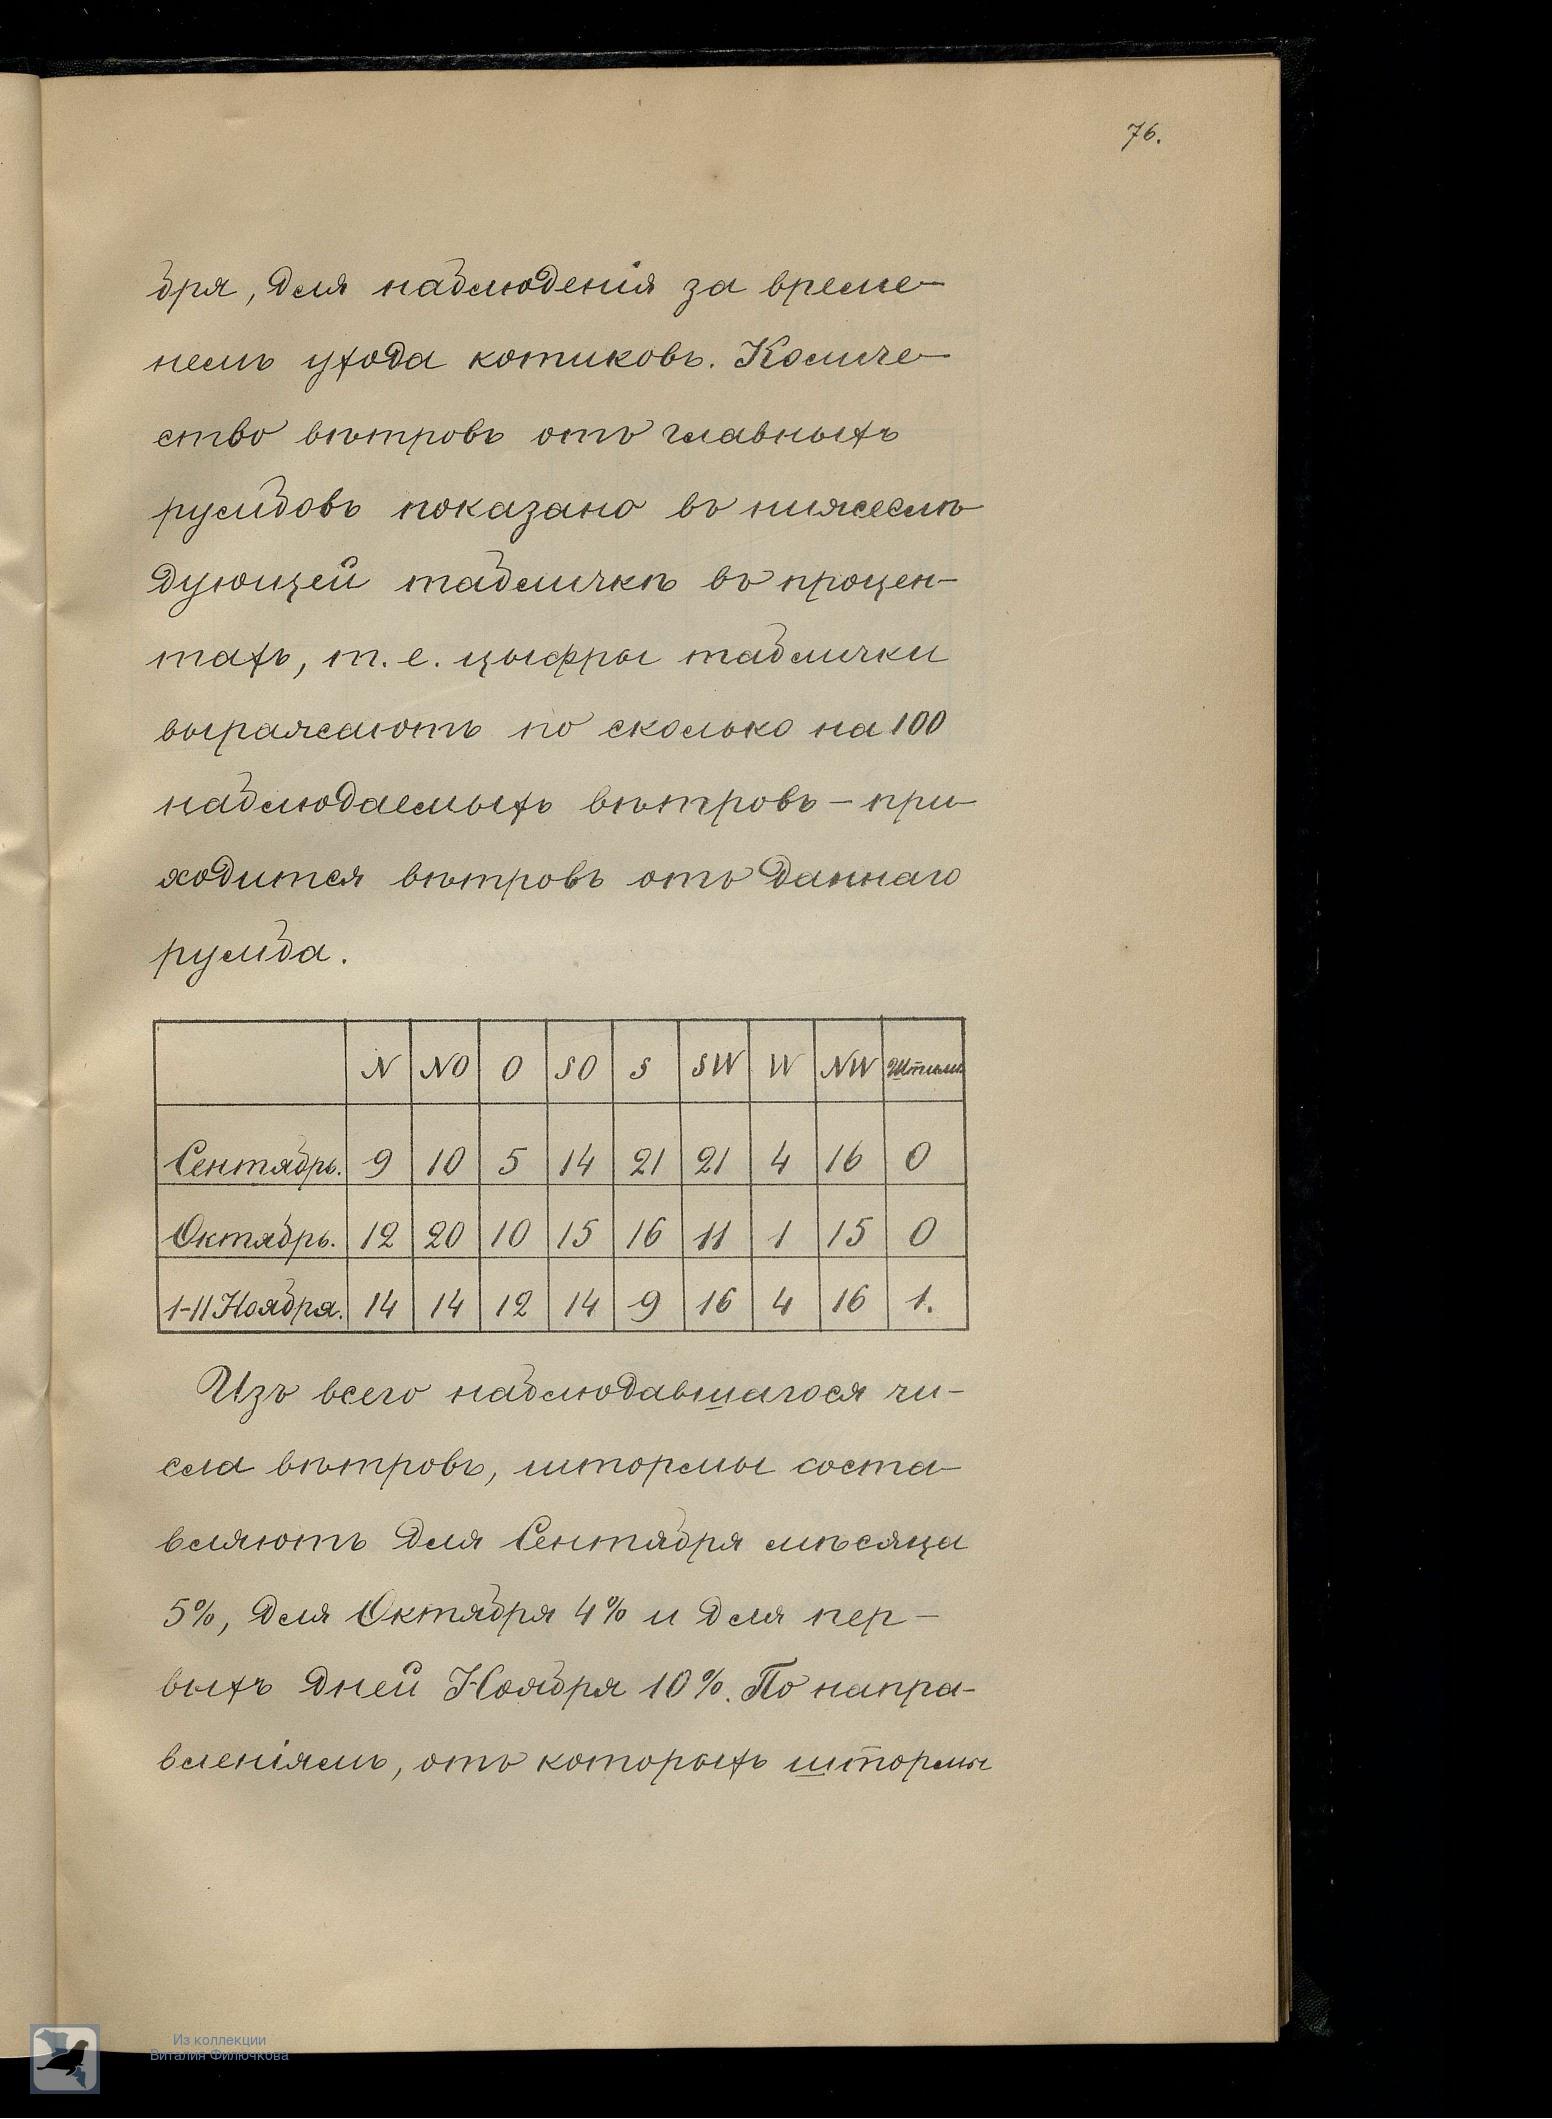 76.
бря, для наблюденія за време-
немъ ухода котиковъ. Количе-
ство вѣтровъ отъ главныхъ
румбовъ показано въ нижеслѣ-
дующей табличкѣ въ процен-
тахъ, т. е. цыфры таблички
выражаютъ по сколько на 100
наблюдаемыхъ вѣтровъ — при-
ходится вѣтровъ отъ даннаго
румба.
N NO O SO S SW W NW Штиль
Сентябрь. 9 10 5 14 21 21 4 16 0
Октябрь. 12 20 10 15 16 11 1 15 0
1-11 Ноября. 14 14 12 14 9 16 4 16 1.
Изъ всего наблюдавшагося чи-
сла вѣтровъ, штормы соста-
вляютъ для Сентября мѣсяца
5%, для Октября 4% и для пер-
выхъ дней Ноября 10%. По напра-
вленіямъ, отъ которыхъ штормы
Из коллекции
Виталия Филючкова